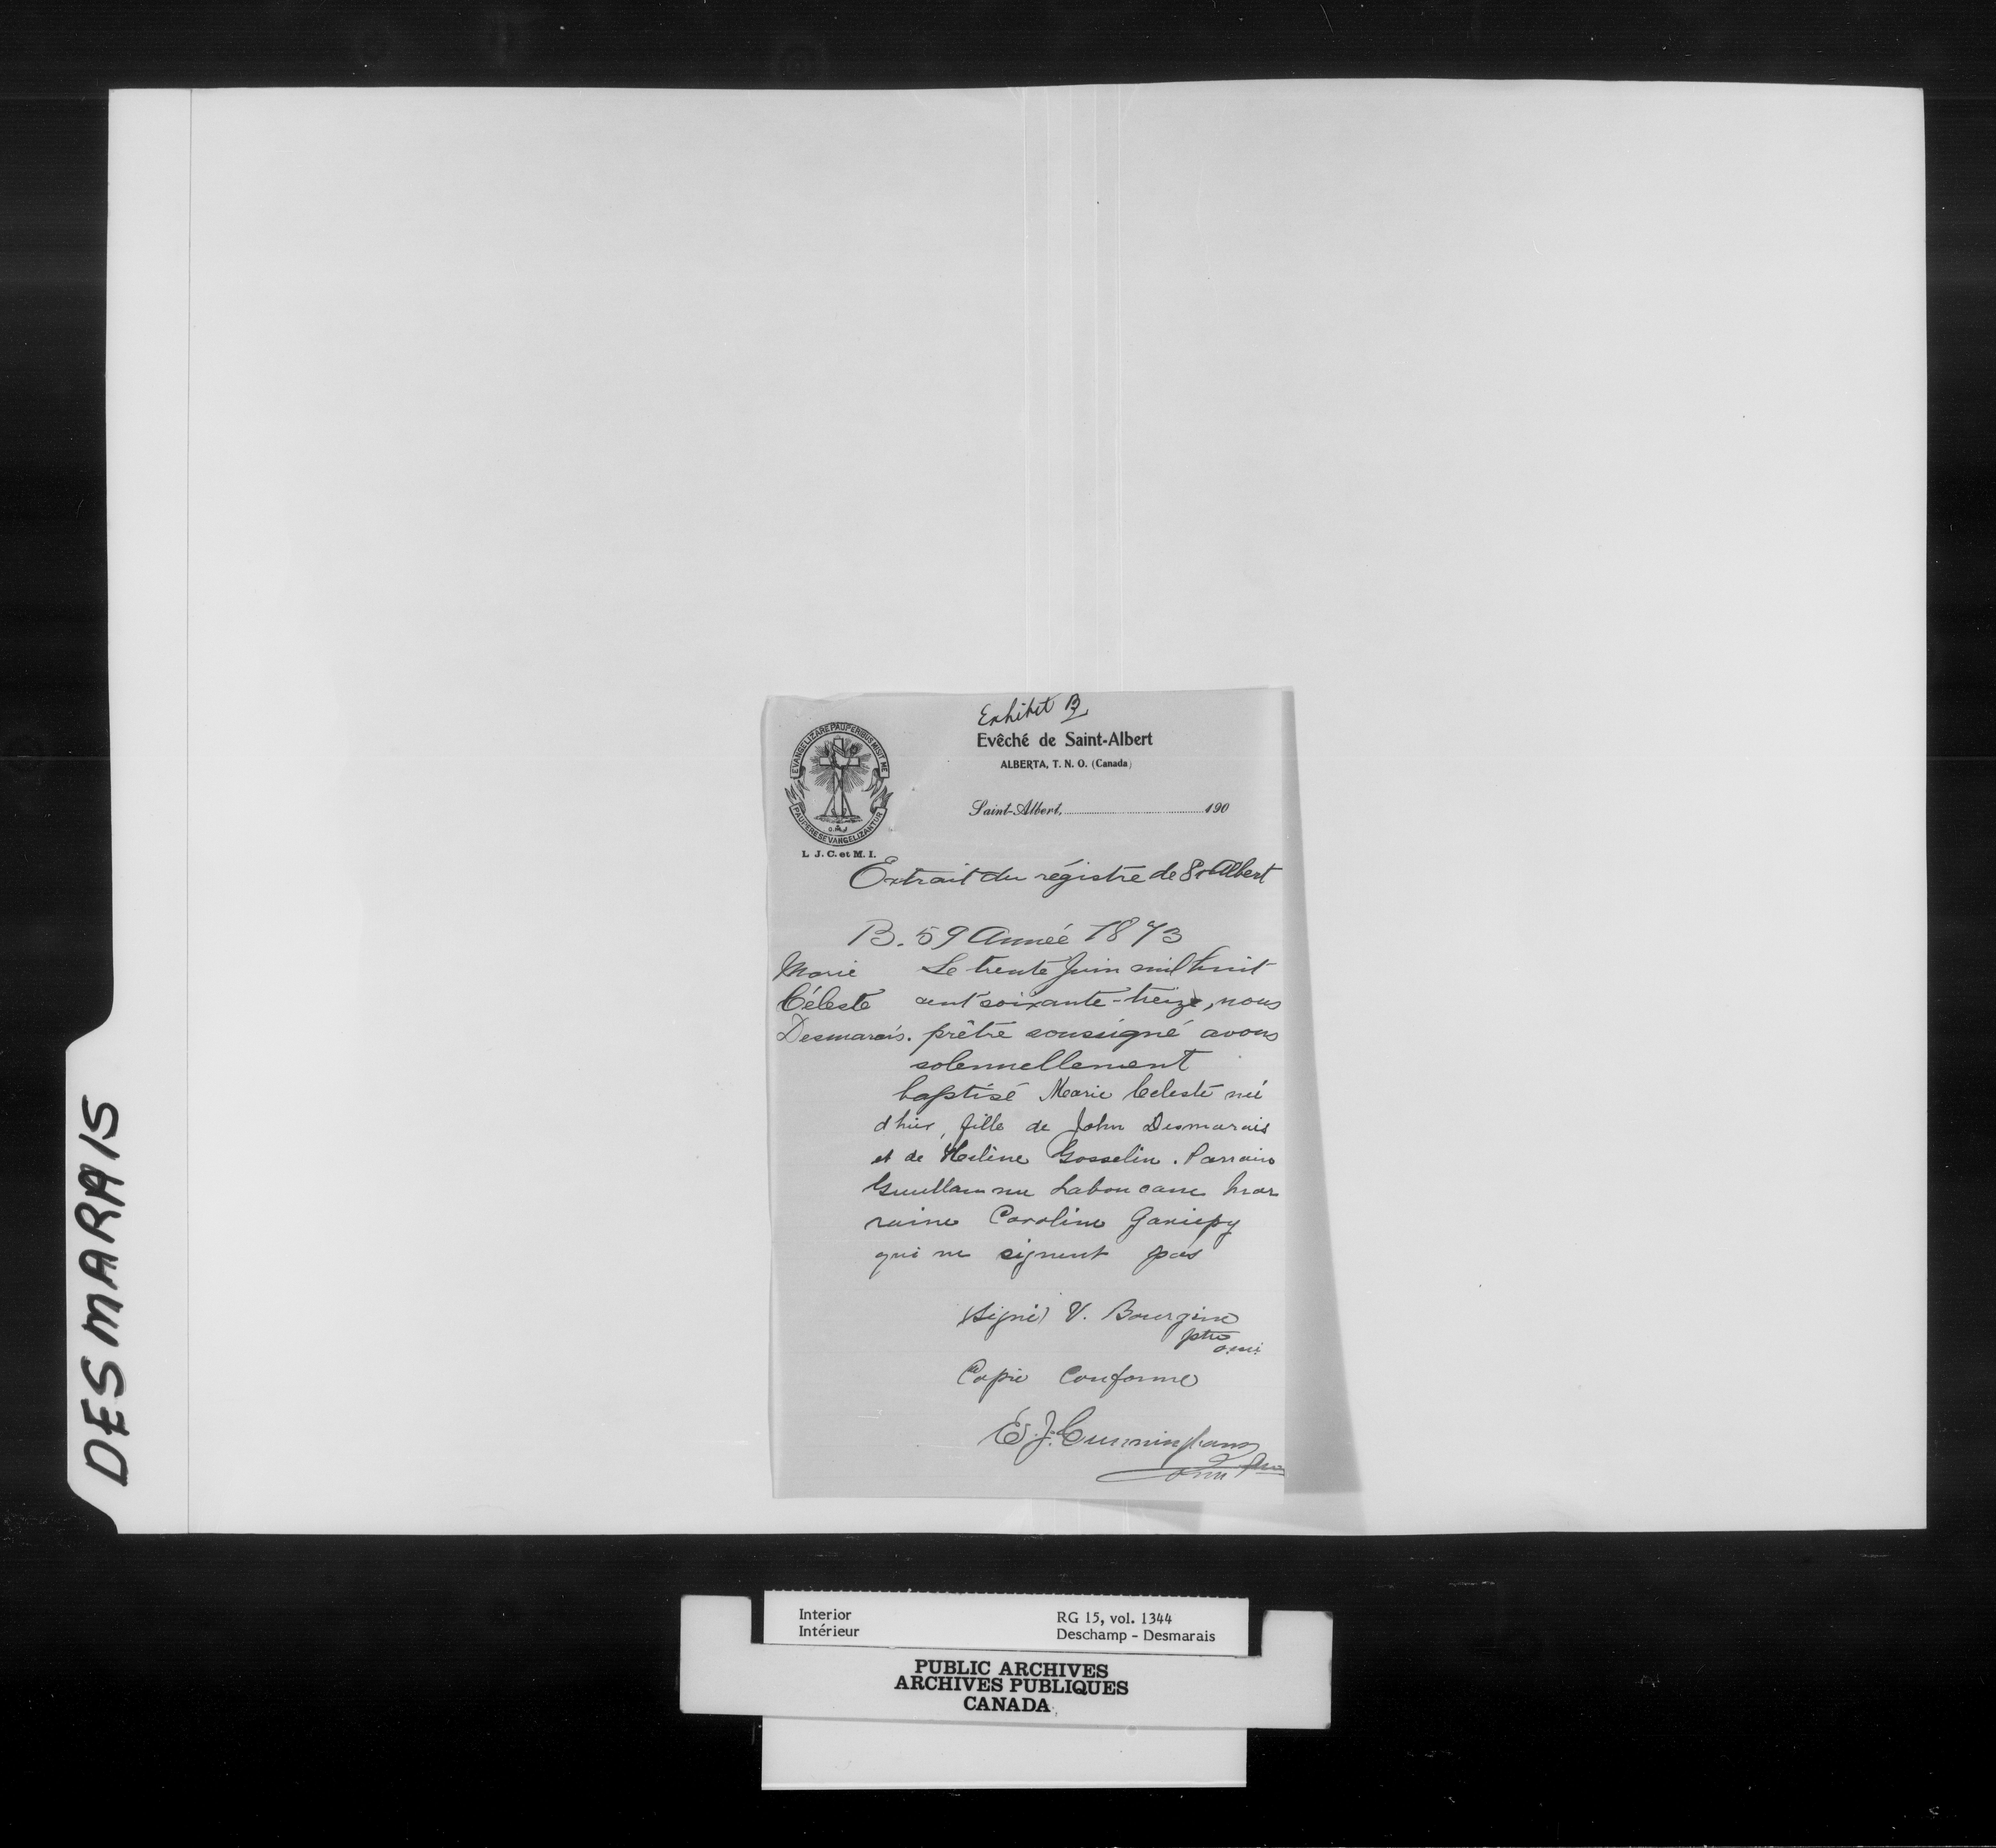 DESMARAIS
Exhibit B
EVANGELIZARE PAUPERIBUS MISIT ME
PAUPERES EVANGELIZANTUR
O.M.I
L. J. C. et M. I.
Evêché de Saint-Albert
ALBERTA, T. N. O. (Canada)
Saint-Albert, 190
Extrait du régistre de St Albert
B. 59 Année 1873
Marie Céleste Desmarais.
Le trente Juin mil huit
cent soixante-treize, nous
prêtre soussigné avons
solennellement
baptisé Marie Celeste né
d'hier, fille de John Desmarais
et de Helène Gosselin. Parrain
Guillaume Laboucane Mar
raine Caroline Gariepy
qui ne signent pas
(Signé) V. Bourgine
ptre
o.m.i.
Copie Conforme
E. J. Cunningham
omi ptre
Interior
Intérieur
RG 15, vol. 1344
Deschamp - Desmarais
PUBLIC ARCHIVES
ARCHIVES PUBLIQUES
CANADA